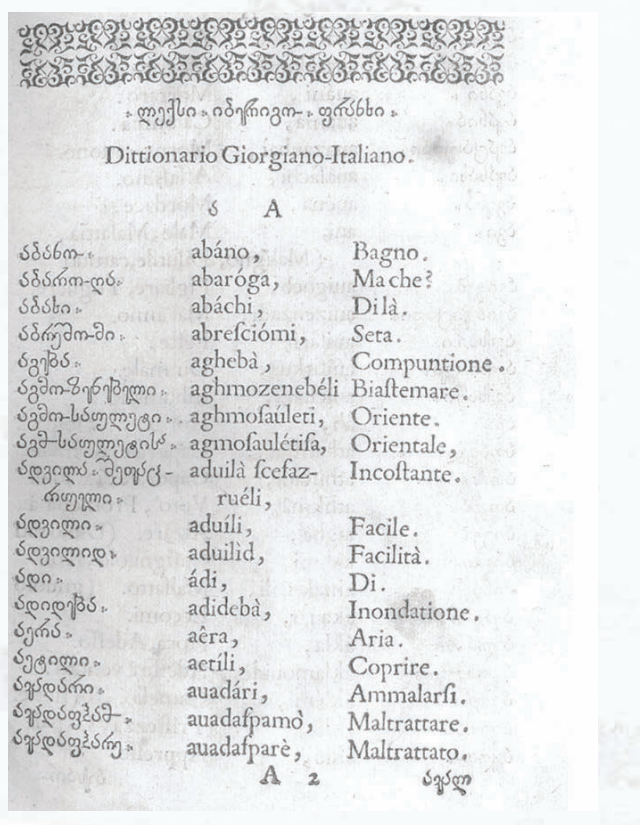 ლექსი იბერიგო- ფრანხი
Dittionario Giorgiano-Italiano.
ა A
აბანო abáno, Bagno.
აბარო-და abaróga, Ma che?
აბახი abáchi, Di là.
აბრეშო-მი abreſciómi, Seta.
აგება aghebà, Compuntione.
აგმო-ზენებელი aghmozenebéli Biaſtemare.
აგმო-საულეტი aghmoſaúleti, Oriente.
აგმ-საულეტისა agmoſaulétiſa, Orientale,
ადვილა aduilà ſceſaz- Incoſtante.
რიუელი ruéli,
ადვილი aduíli, Facile.
ადვილიდ aduilìd, Facilità.
ადი ádi, Di.
ადიდება adidebà, Inondatione.
აერა aêra, Aria.
აეტილი aetíli, Coprire.
ავადარი auadári, Ammalarſi.
auadaſpamò, Maltrattare.
auadaſparè, Maltrattato.
A 2 ავალ